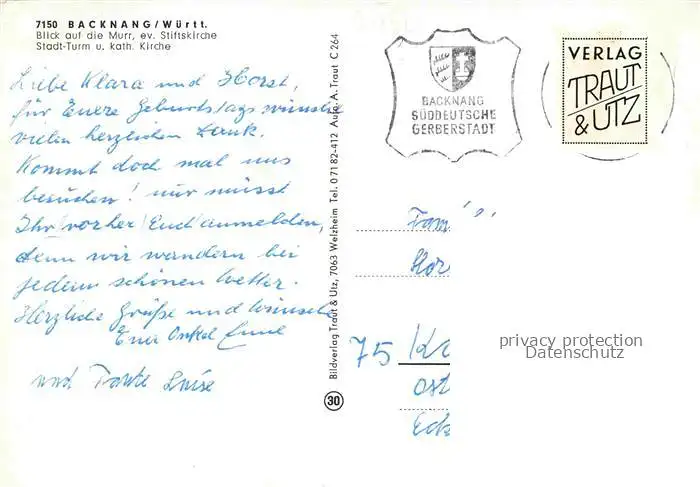 7150 BACKNANG/Württ.
Blick auf die Murr, ev. Stiftskirche
Stadt-Turm u. kath. Kirche
Liebe Klara und Horst,
für Euere Geburtstagswünsche
vielen herzlichen Dank.
Kommt doch mal uns
besuchen! nur müsst
Ihr vorher Euch anmelden,
denn wir wandern bei
jedem schönen Wetter.
Herzliche Grüße und Wünsche
Euer Onkel
und Tante Luise
Bildverlag Traut & Utz, 7063 Welzheim Tel. 0 71 82-412 Aufn. A. Traut C 264
30
BACKNANG
SÜDDEUTSCHE
GERBERSTADT
VERLAG
TRAUT
& UTZ
Fam
Hor
75 Ka
Ost
Eck
privacy protection
Datenschutz